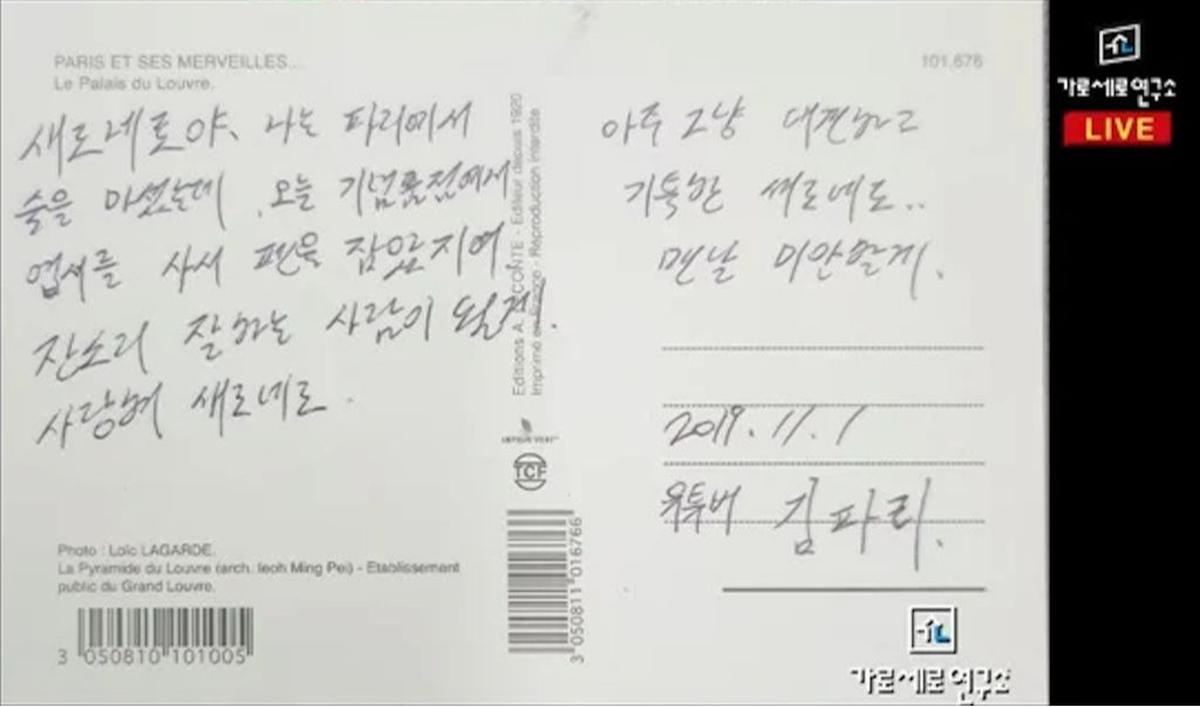 PARIS ET SES MERVEILLES...
Le Palais du Louvre.
101.676
새로네로야, 나는 파리에서
술을 마셨는데, 오늘 기념품점에서
엽서를 사서 펜을 잡았지여.
잔소리 잘하는 사람이 될게!
사랑해 새로네로.
아주 그냥 대견하고
기특한 새로네로..
맨날 미안할게.
2019.11.1
유투버 김파리.
Editions A. LECONTE - Editeur depuis 1920
Imprimé en France - Reproduction interdite
IMPRIM'VERT
TCF
Photo : Loïc LAGARDE.
La Pyramide du Louvre (arch. Ieoh Ming Pei) - Etablissement
public du Grand Louvre.
3 050810 101005
3 050811 016766
가로세로연구소
LIVE
가로세로연구소